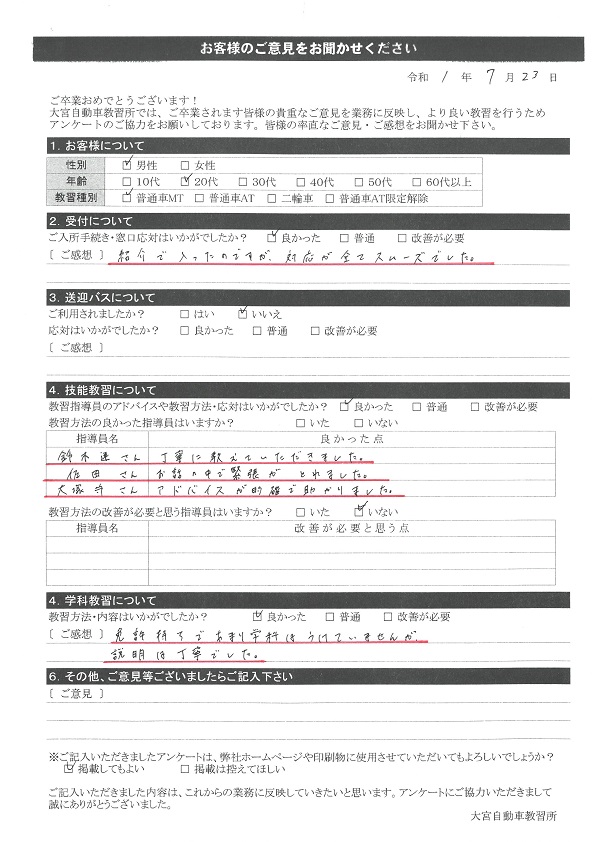 お客様のご意見をお聞かせください
令和 1 年 7 月 23 日
ご卒業おめでとうございます！
大宮自動車教習所では、ご卒業されます皆様の貴重なご意見を業務に反映し、より良い教習を行うため
アンケートのご協力をお願いしております。皆様の率直なご意見・ご感想をお聞かせ下さい。
1. お客様について
性別 ☑男性 □女性
年齢 □10代 ☑20代 □30代 □40代 □50代 □60代以上
教習種別 ☑普通車MT □普通車AT □二輪車 □普通車AT限定解除
2. 受付について
ご入所手続き・窓口応対はいかがでしたか？ ☑良かった □普通 □改善が必要
［ご感想］ 紹介で入ったのですが、対応が全てスムーズでした。
3. 送迎バスについて
ご利用されましたか？ □はい ☑いいえ
応対はいかがでしたか？ □良かった □普通 □改善が必要
［ご感想］
4. 技能教習について
教習指導員のアドバイスや教習方法・応対はいかがでしたか？ ☑良かった □普通 □改善が必要
教習方法の良かった指導員はいますか？ □いた □いない
指導員名 良かった点
鈴木 さん 丁寧に教えていただきました。
佐田さん お話の中で緊張がとれました。
大塚 さん アドバイスが的確で助かりました。
教習方法の改善が必要と思う指導員はいますか？ □いた ☑いない
指導員名 改善が必要と思う点
4. 学科教習について
教習方法・内容はいかがでしたか？ ☑良かった □普通 □改善が必要
［ご感想］ 免許持ちであまり学科はうけていませんが、
説明は丁寧でした。
6. その他、ご意見等ございましたらご記入下さい
［ご意見］
※ご記入いただきましたアンケートは、弊社ホームページや印刷物に使用させていただいてもよろしいでしょうか？
☑掲載してもよい □掲載は控えてほしい
ご記入いただきました内容は、これからの業務に反映していきたいと思います。アンケートにご協力いただきまして
誠にありがとうございました。
大宮自動車教習所